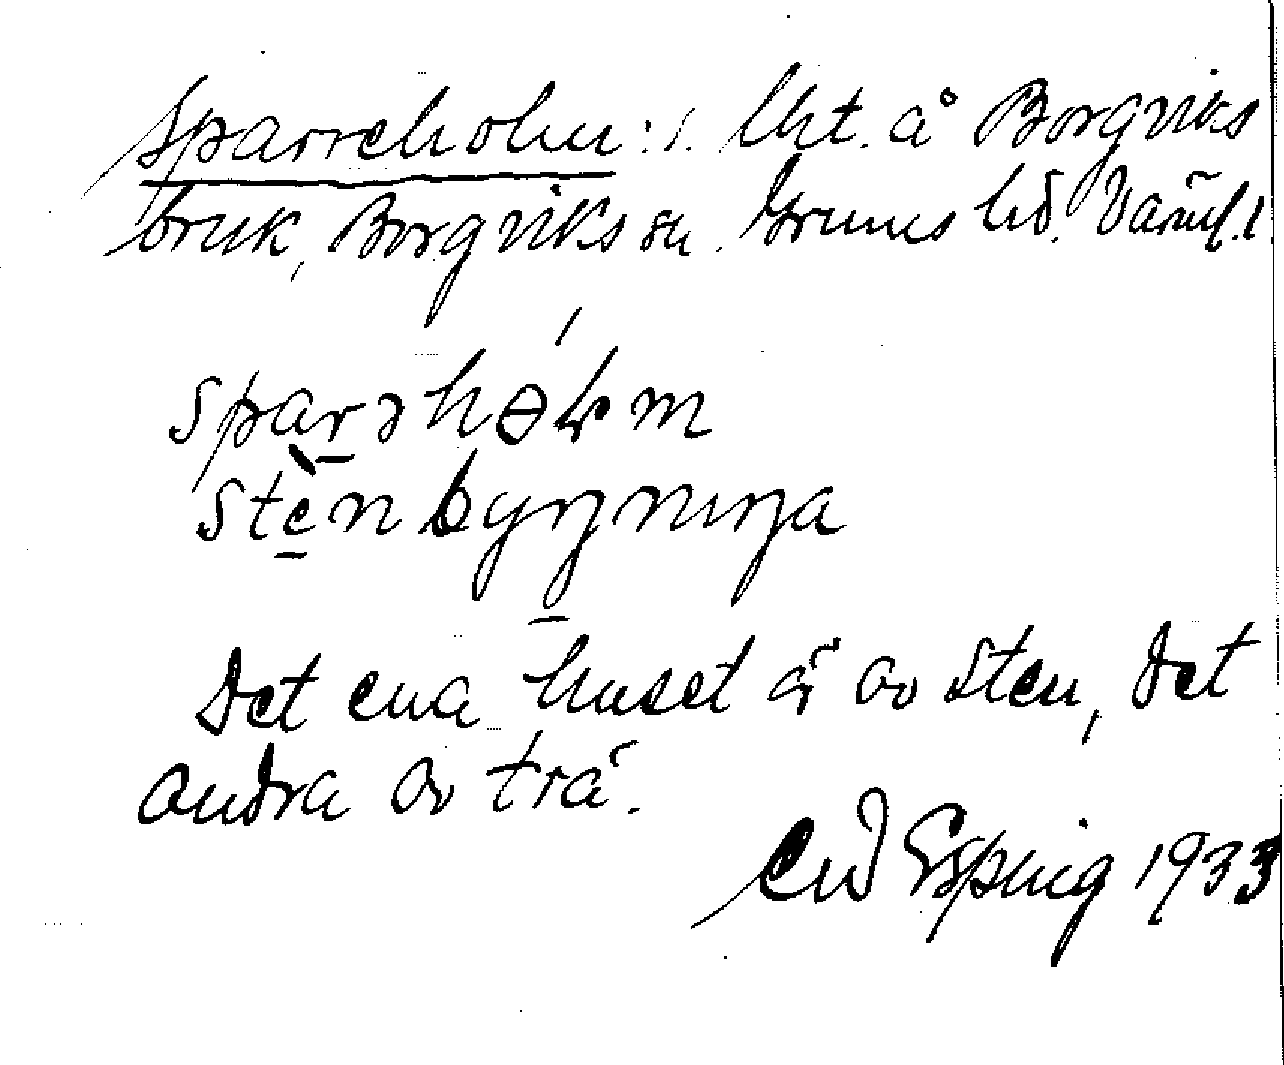 Sparreholm: s. lht. å Borgviks
bruk, Borgviks sn. Grums hd. Värml. l
sparəhɵɽm
stènbyŋnɩŋa
Det ena huset är av sten, det
andra av trä.
Espling 1933